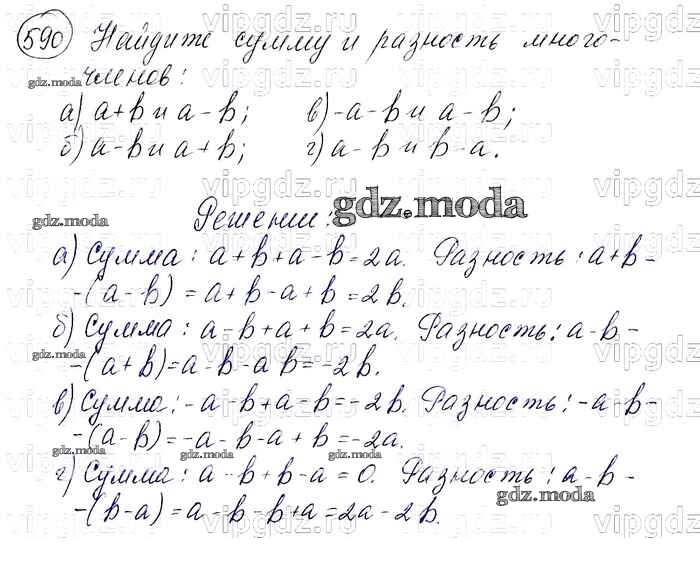 590 Найдите сумму и разность много-
членов:
а) a+b и a-b; в) -a-b и a-b;
б) a-b и a+b; г) a-b и b-a.
Решении:
а) Сумма: a+b+a-b=2a. Разность: a+b-
-(a-b) = a+b-a+b=2b.
б) Сумма: a-b+a+b=2a. Разность: a-b-
-(a+b)=a-b-a b=-2b.
в) Сумма: -a-b+a-b=-2b. Разность: -a-b-
-(a-b)=-a-b-a+b=-2a.
г) Сумма: a-b+b-a=0. Разность: a-b-
-(b-a)=a-b-b+a=2a-2b.
gdz.moda
gdz.moda
gdz.moda
gdz.moda
gdz.moda
gdz.moda
gdz.moda
gdz.moda
vipgdz.ru